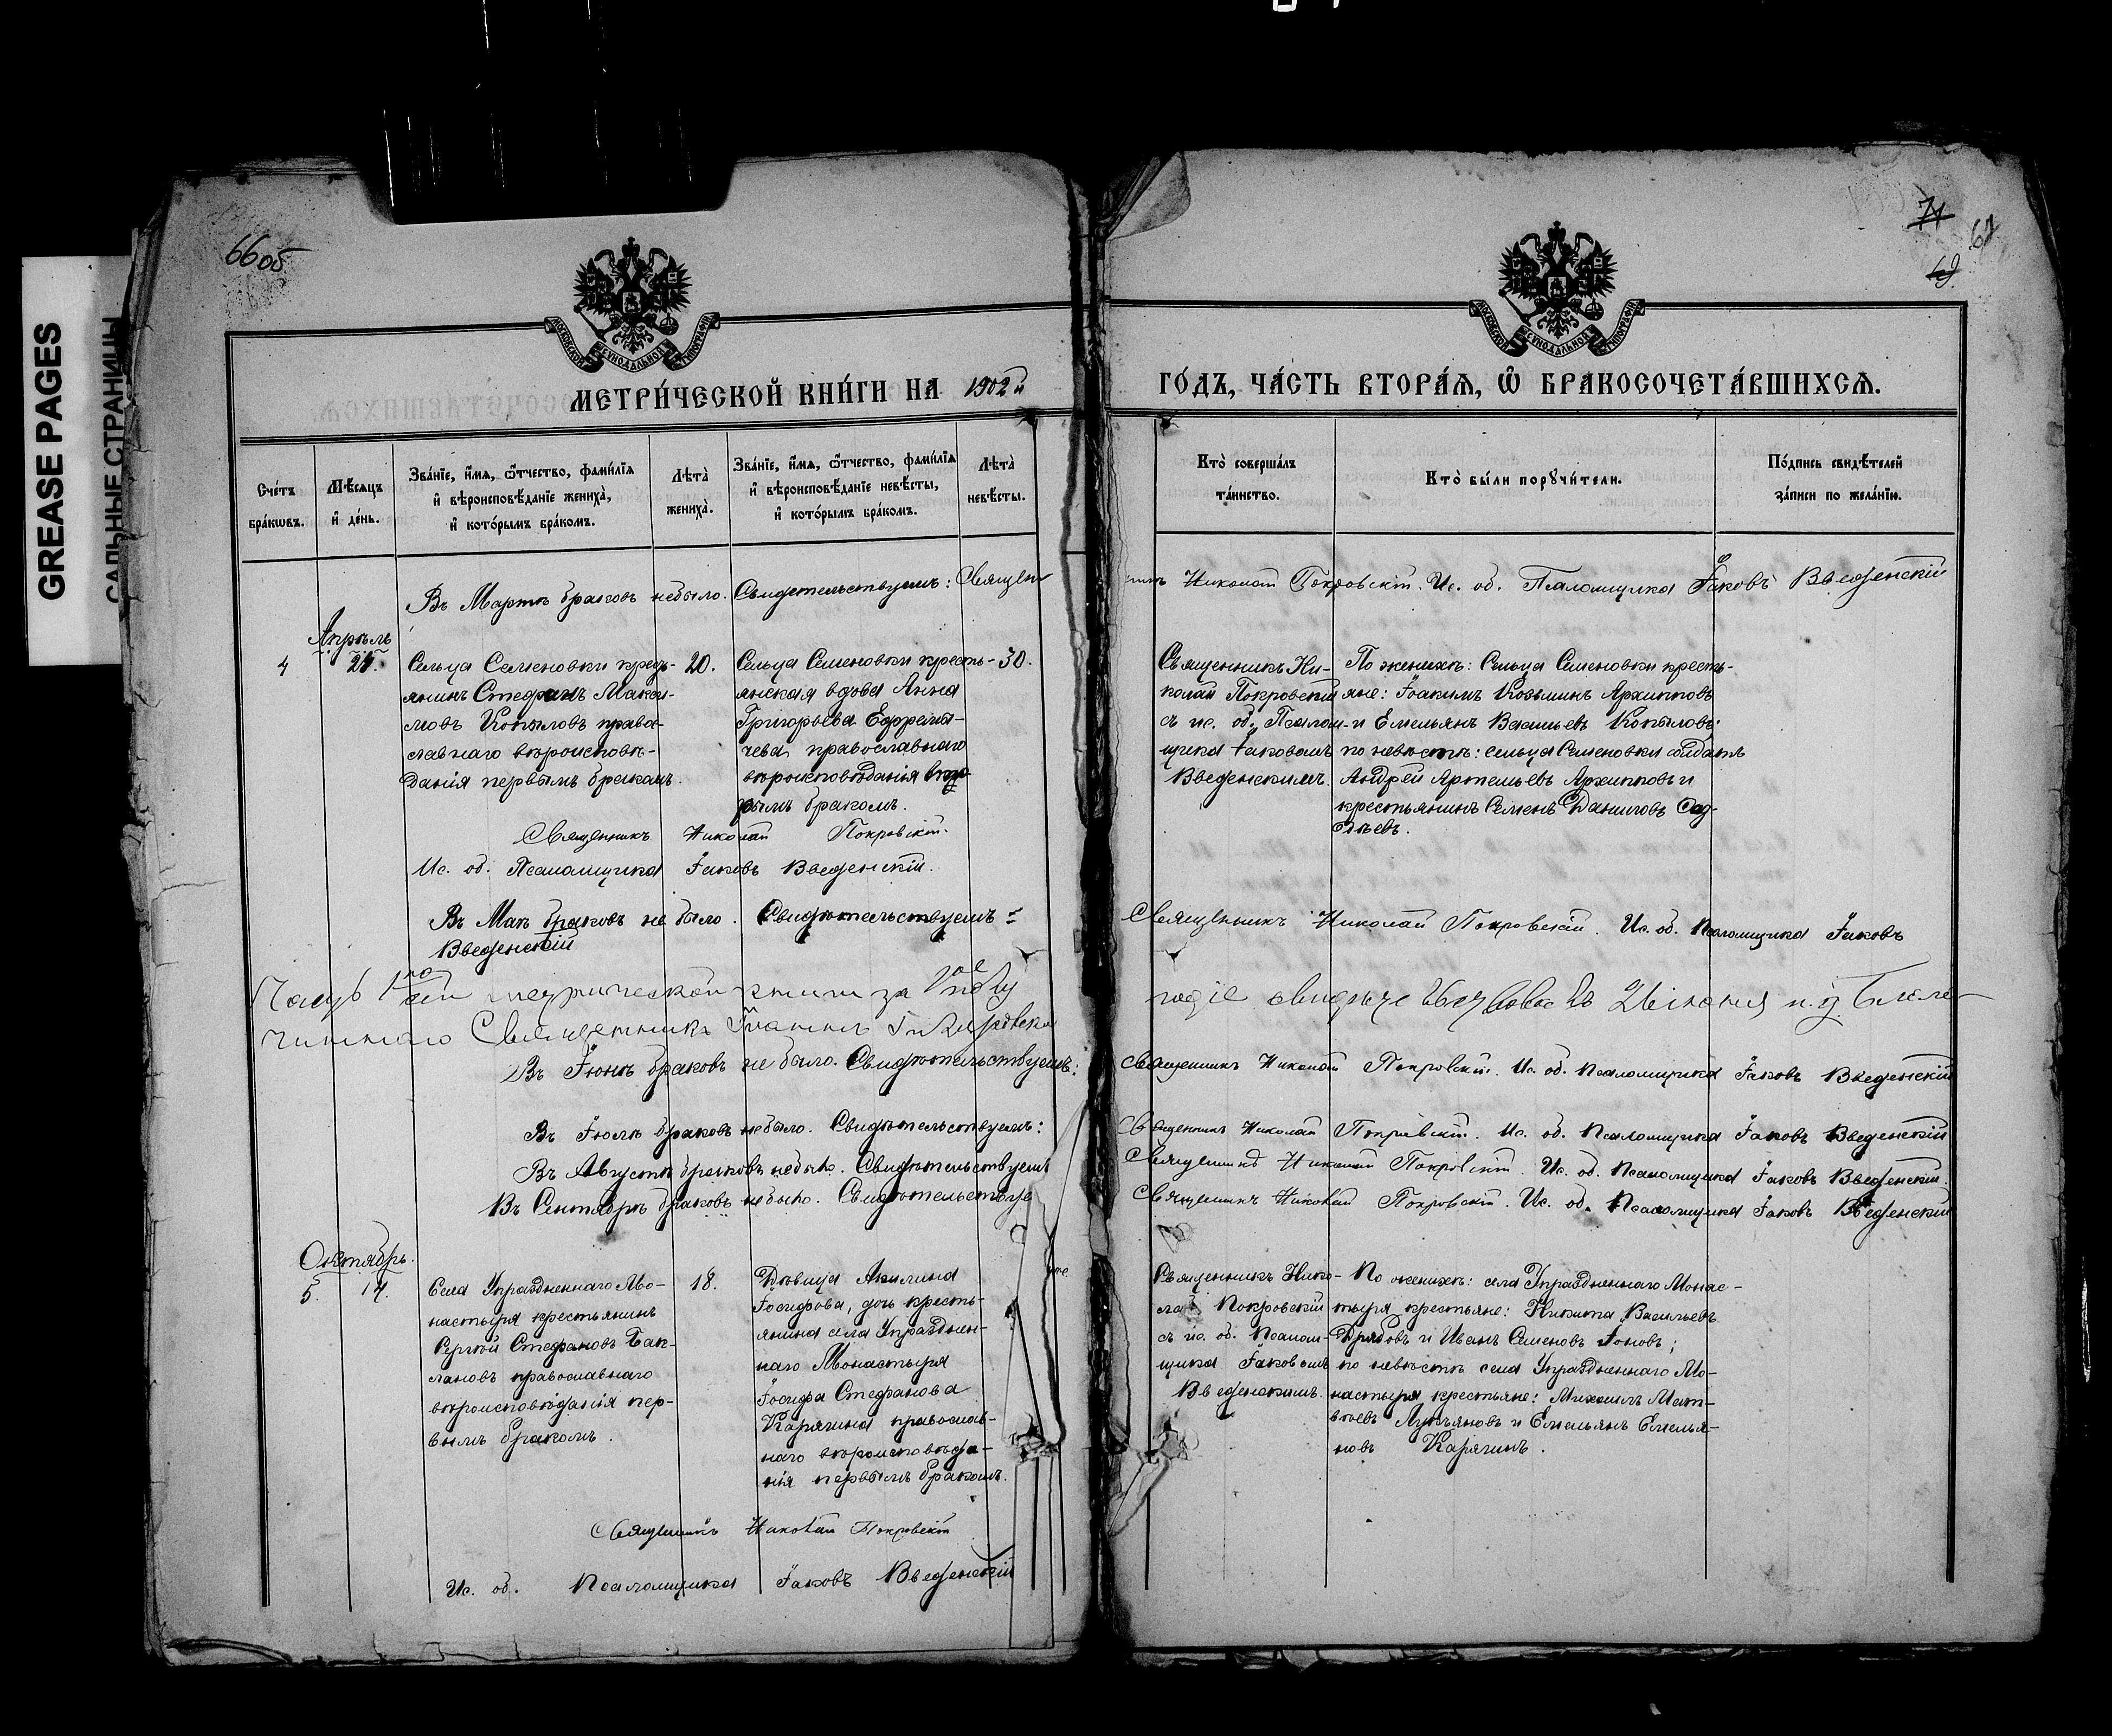 GREASE PAGES
САЛЬНЫЕ СТРАНИЦЫ
66об
71
67
69
МОСКОВСКОЙ СѴНОДАЛЬНОЙ ТИПОГРАФІИ
МОСКОВСКОЙ СѴНОДАЛЬНОЙ ТИПОГРАФІИ
МЕТРИ́ЧЕСКОЙ КНИ́ГИ НА 1902й
ГО́ДЪ, ЧА́СТЬ ВТОРА́Я, Ѡ҆ БРАКОСОЧЕТА́ВШИХСЯ.
Сче́тъ бра́кѡвъ.
Мѣ́сяцъ и҆ де́нь.
Зва́нїе, и҆́мя, ѻ҆́тчество, фами́лїя и҆ вѣроисповѣ́данїе жениха̀, и҆ кото́рымъ бра́комъ.
Лѣта̀ жениха̀.
Зва́нїе, и҆́мя, ѻ҆́тчество, фами́лїя и҆ вѣроисповѣ́данїе невѣ́сты, и҆ кото́рымъ бра́комъ.
Лѣта̀ невѣ́сты.
Кто̀ соверша́лъ та́инство.
Кто̀ бы́ли порꙋчи́тели.
По́дпись свидѣ́телей за́писи по жела́нїю.
Въ Мартѣ браковъ небыло. Свидетельствуемъ: Священ
никъ Николай Покровскій. Ис. об. Псаломщика Іаковъ Введенскій
Апрѣль
4
Сельца Семеновки кресть-
янинъ Стефанъ Макси-
мовъ Копыловъ право-
славнаго вѣроисповѣ-
данія первымъ бракомъ.
20.
Сельца Семеновки кресть-
янская вдова Анна
Григорьева Ефремы-
чева православнаго
вѣроисповѣданія вто
рымъ бракомъ.
30.
Священникъ Ни-
колай Покровскій
съ ис. об. Псалом-
щика Іаковомъ
Введенскимъ.
По женихѣ: Сельца Семеновки кресть-
яне: Іоакимъ Козьминъ Архиповъ
и Емельянъ Васильевъ Копыловъ;
по невѣстѣ: сельца Семеновки солдатъ
Андрей Артемьевъ Архиповъ и
крестьянинъ Семенъ Даниловъ
Священникъ Николай Покровскій.
Ис. об. Псаломщика Іаковъ Введенскій.
Въ Маѣ браковъ не было. Свидѣтельствуемъ:
Священникъ Николай Покровскій. Ис. об. Псаломщика Іаковъ
Введенскій
метрической книги за
Священникъ
Въ Іюнѣ браковъ не было. Свидѣтельствуемъ:
Священникъ Николай Покровскій. Ис. об. Псаломщика Іаковъ Введенскій
Въ Іюлѣ браковъ небыло. Свидѣтельствуемъ:
Священникъ Николай Покровскій. Ис. об. Псаломщика Іаковъ Введенскій
Въ Августѣ браковъ небыло. Свидѣтельствуемъ
Священникъ Николай Покровскій. Ис. об. Псаломщика Іаковъ Введенскій.
Въ Сентябрѣ браковъ небыло. Свидѣтельству
Священникъ Николай Покровскій. Ис. об. Псаломщика Іаковъ Введенскій
Октябрь.
5.
Села Упраздненнаго Мо-
настыря крестьянинъ
Сергій Стефановъ Бак-
лановъ православнаго
вѣроисповѣданія пер-
вымъ бракомъ.
18.
Дѣвица Акилина
Іосифова, дочь кресть-
янина села Упразднен-
наго Монастыря
Іосифа Стефанова
Карягина православ-
наго вѣроисповѣда-
нія первымъ бракомъ.
Священникъ Нико-
лай Покровскій
съ ис. об. Псалом-
щика Іаковомъ
Введенскимъ.
По женихѣ: села Упраздненнаго Монас-
тыря крестьяне: Никита Васильевъ
Дрябовъ и Иванъ Семеновъ Іоновъ;
по невѣстѣ села Упраздненнаго Мо-
настыря крестьяне: Михаилъ Мат-
вѣевъ Лукъяновъ и Емельянъ Емелья-
новъ Карягинъ.
Священникъ Николай Покровскій
Ис. об. Псаломщика Іаковъ Введенскій